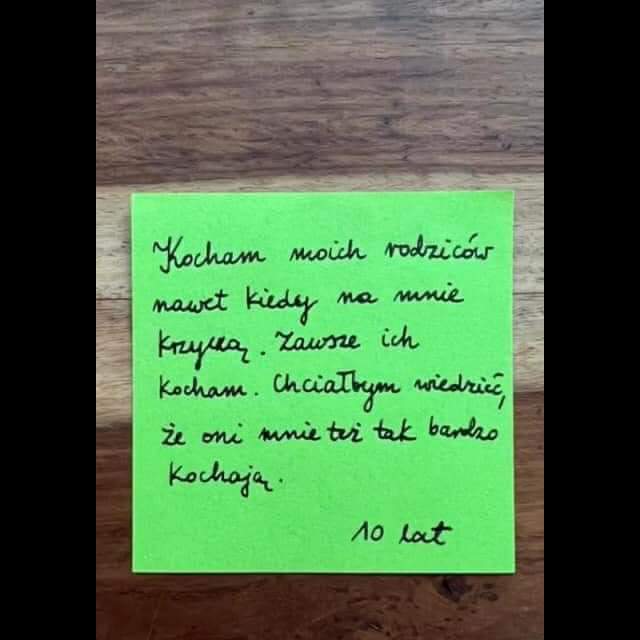 Kocham moich rodziców
nawet kiedy na mnie
krzyczą. Zawsze ich
kocham. Chciałbym wiedzieć,
że oni mnie też tak bardzo
kochają.
10 lat